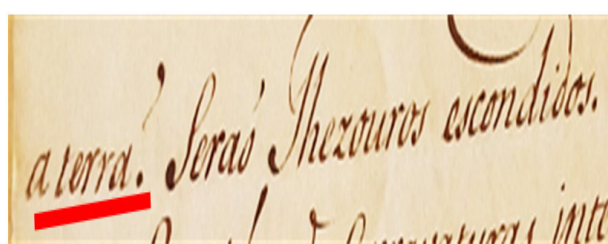 a terra? Seraõ Thezouros escondidos.